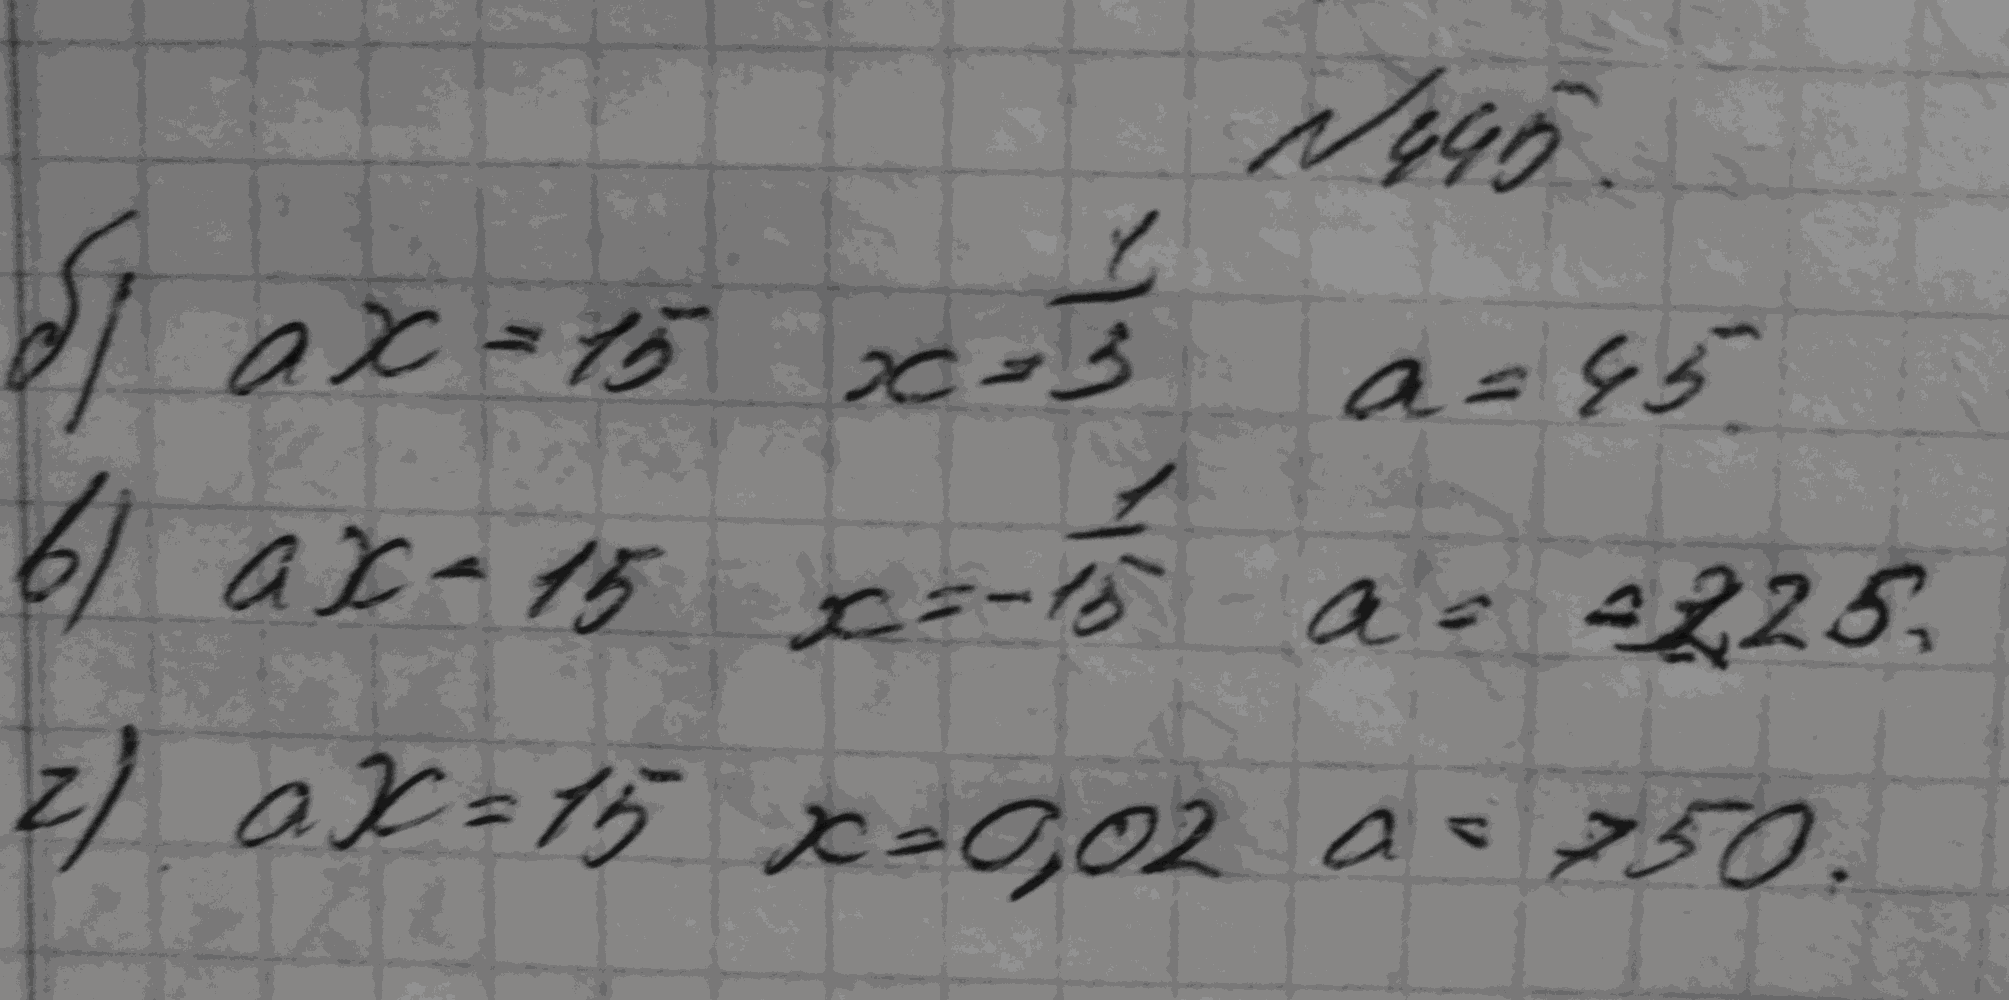 №445.
б) ax = 15 x = 1/3 a = 45.
в) ax = 15 x = -1/15 a = -225.
г) ax = 15 x = 0,02 a = 750.